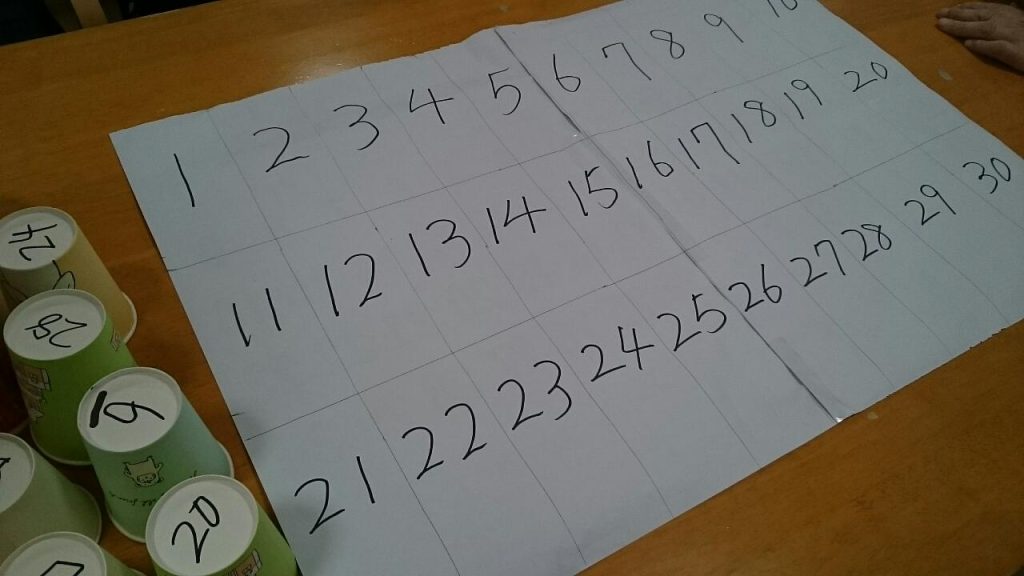 1 2 3 4 5 6 7 8 9 10
11 12 13 14 15 16 17 18 19 20
21 22 23 24 25 26 27 28 29 30
24
28
19
20